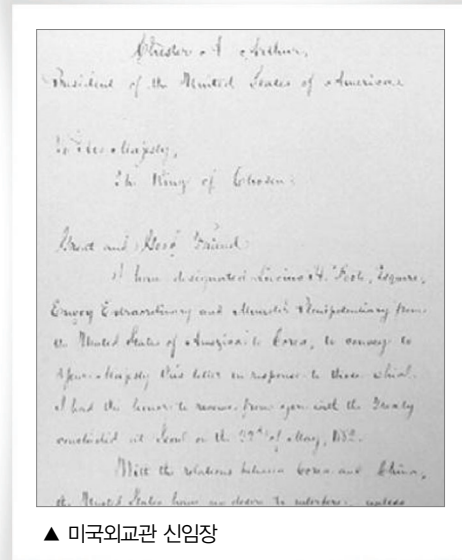 Chester A. Arthur,
President of the United States of America
To His Majesty,
The King of Chosen:
Great and Good Friend:
I have designated Lucius H. Foote, Esquire,
Envoy Extraordinary and Minister Plenipotentiary from
the United States of America to Corea, to convey to
Your Majesty this letter in response to those which
I had the honor to receive from you with the Treaty
concluded at Seoul on the 22nd of May, 1882.
With the relations between Corea and China,
the United States have no desire to interfere, unless
▲ 미국외교관 신임장